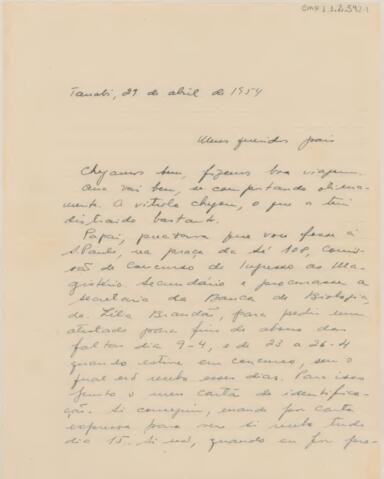 Tanabi, 29 de abril de 1954
Meus queridos pais
Chegamos bem, fizemos boa viagem.
Ana vai bem, se comportando otima-
mente. A vitrola chegou, o que a tem
distraido bastante.
Papai, precisava que você fosse à
S. Paulo, na praça da Sé 108, comis-
são de concurso de Ingresso ao Ma-
gistério Secundário e procurasse a
secretaria da Banca de Biologia,
da. Lila Brandão, para pedir um
atestado para fins de abono das
faltas dia 9-4, e de 23 a 26-4
quando estive em concurso, sem o
qual não recebo esses dias. Para isso
junto o meu cartão de identifica-
ção. Si conseguir, mande por carta
expressa para ver si recebo tudo
dia 15. Si não, quando eu for pro-